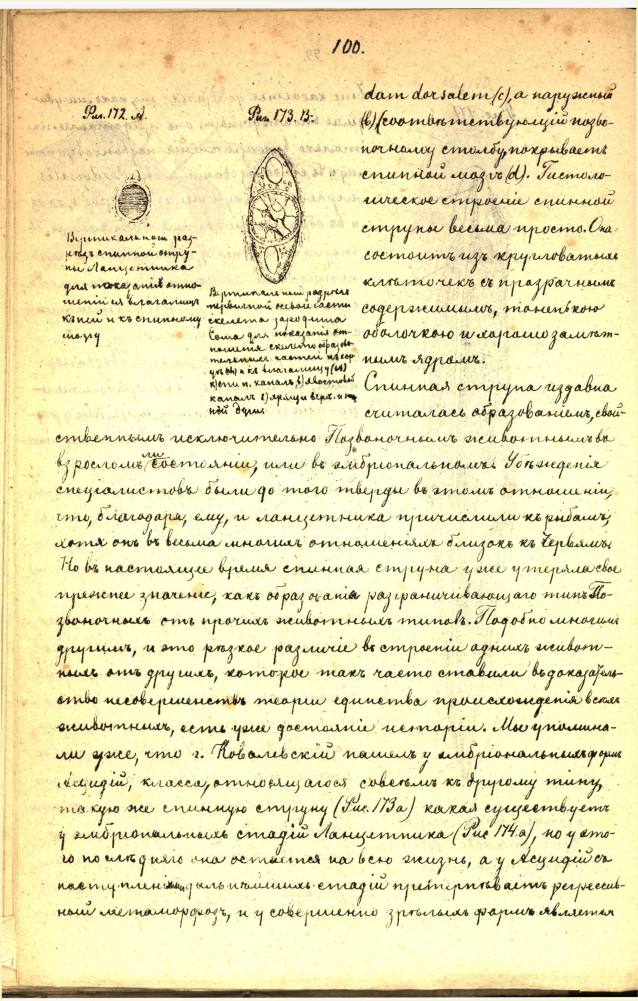 100.
Рис. 172. А.
Рис. 173. В.
Вертикальный раз-
рѣзъ спинной стру-
ны Ланцетника
для показанія отно-
шенія ея влагалища
къ ней и къ спинному
мозгу
Вертикальный разрѣзъ
осевой части
скелета зародыша
Сома для показанія от-
ношенія скелето образо-
вательныхъ частей
и къ влагалищу
каналъ
каналъ хрящи верх. и
ней дуги
dam dorsalem (c), а наружный
(b) (соотвѣтствующій позво-
ночному столбу) покрываетъ
спинной мозгъ (d). Гистоло-
гическое строеніе спинной
струны весьма просто. Она
состоитъ изъ кругловатыхъ
клѣточекъ съ прозрачнымъ
содержимымъ, тоненькою
оболочкою и хорошо замѣт-
нымъ ядромъ.
Спинная струна издавна
считалась образованіемъ, свой-
ственнымъ исключительно Позвоночнымъ животнымъ во
взросломъ ли состояніи, или въ эмбріональномъ. Убѣжденія
спеціалистовъ были до того тверды въ этомъ отношеніи,
что, благодаря, ему, и ланцетника причислили къ рыбамъ,
хотя онъ въ весьма многихъ отношеніяхъ близокъ къ Червямъ.
Но въ настоящее время спинная струна уже утеряла свое
прежнее значеніе, какъ образованія разграничивающаго типъ По-
звоночныхъ отъ прочихъ животныхъ типовъ. Подобно многимъ
другимъ, и это рѣзкое различіе въ строеніи однихъ живот-
ныхъ отъ другихъ, которое такъ часто ставили въ доказатель-
ство несовершенствъ теоріи единства происхожденія всѣхъ
животныхъ, есть уже достояніе исторіи. Мы упомина-
ли уже, что г. Ковалевскій нашелъ у эмбріональныхъ формъ
Асцидій, класса, относящагося совсѣмъ къ другому типу,
такую же спинную струну (Рис. 173а) какая существуетъ
у эмбріональныхъ стадій Ланцетника (Рис 174а), но у это-
го послѣдняго она остается на всю жизнь, а у Асцидій съ
наступленіемъ дальнѣйшихъ стадій претерпѣваетъ регрессив-
ный метаморфозъ, и у совершенно зрѣлыхъ формъ является